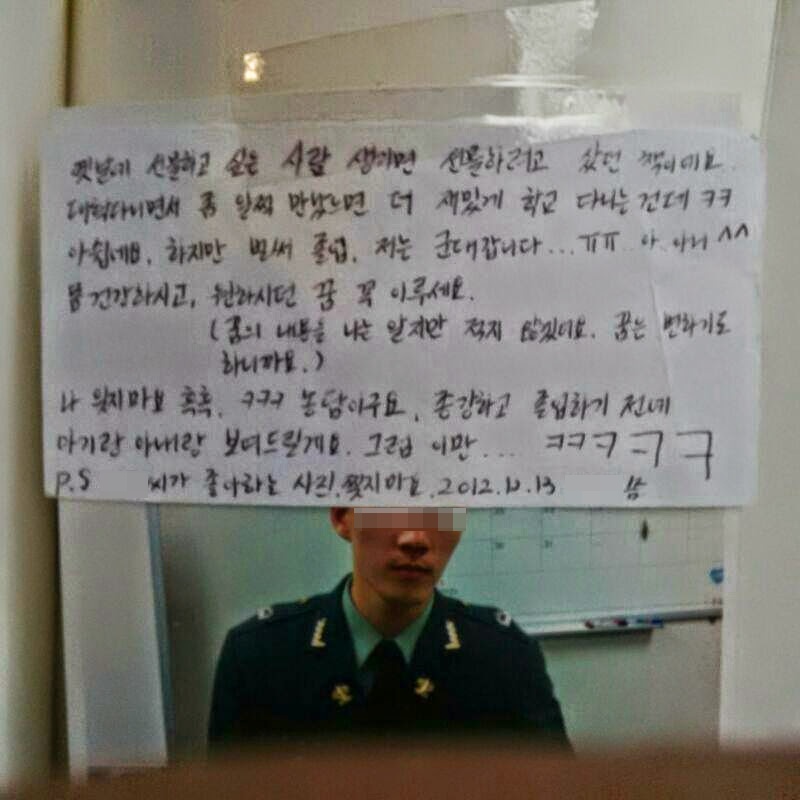 옛날에 선물하고 싶은 사람 생기면 선물하려고 샀던 책이데요.
대학다니면서 좀 일찍 만났으면 더 재밌게 학교 다니는건데 ㅋㅋ
아쉽네요, 하지만 벌써 졸업, 저는 군대갑니다... ㅠㅠ 아.아니 ^^
몸 건강하시고, 원하시던 꿈 꼭 이루세요.
(꿈의 내용을 나는 알지만 적지 않겠데요. 꿈는 변하기도
하니까요.)
나 잊지마요 흑흑. ㅋㅋㅋ 농담이구요, 하고 졸업하기 전에
아기랑 아내랑 보여드릴게요. 그럼 이만.... ㅋㅋㅋㅋㅋ
P.S 씨가 좋아하는 사진. 잊지마요. 2012.12.13 씀